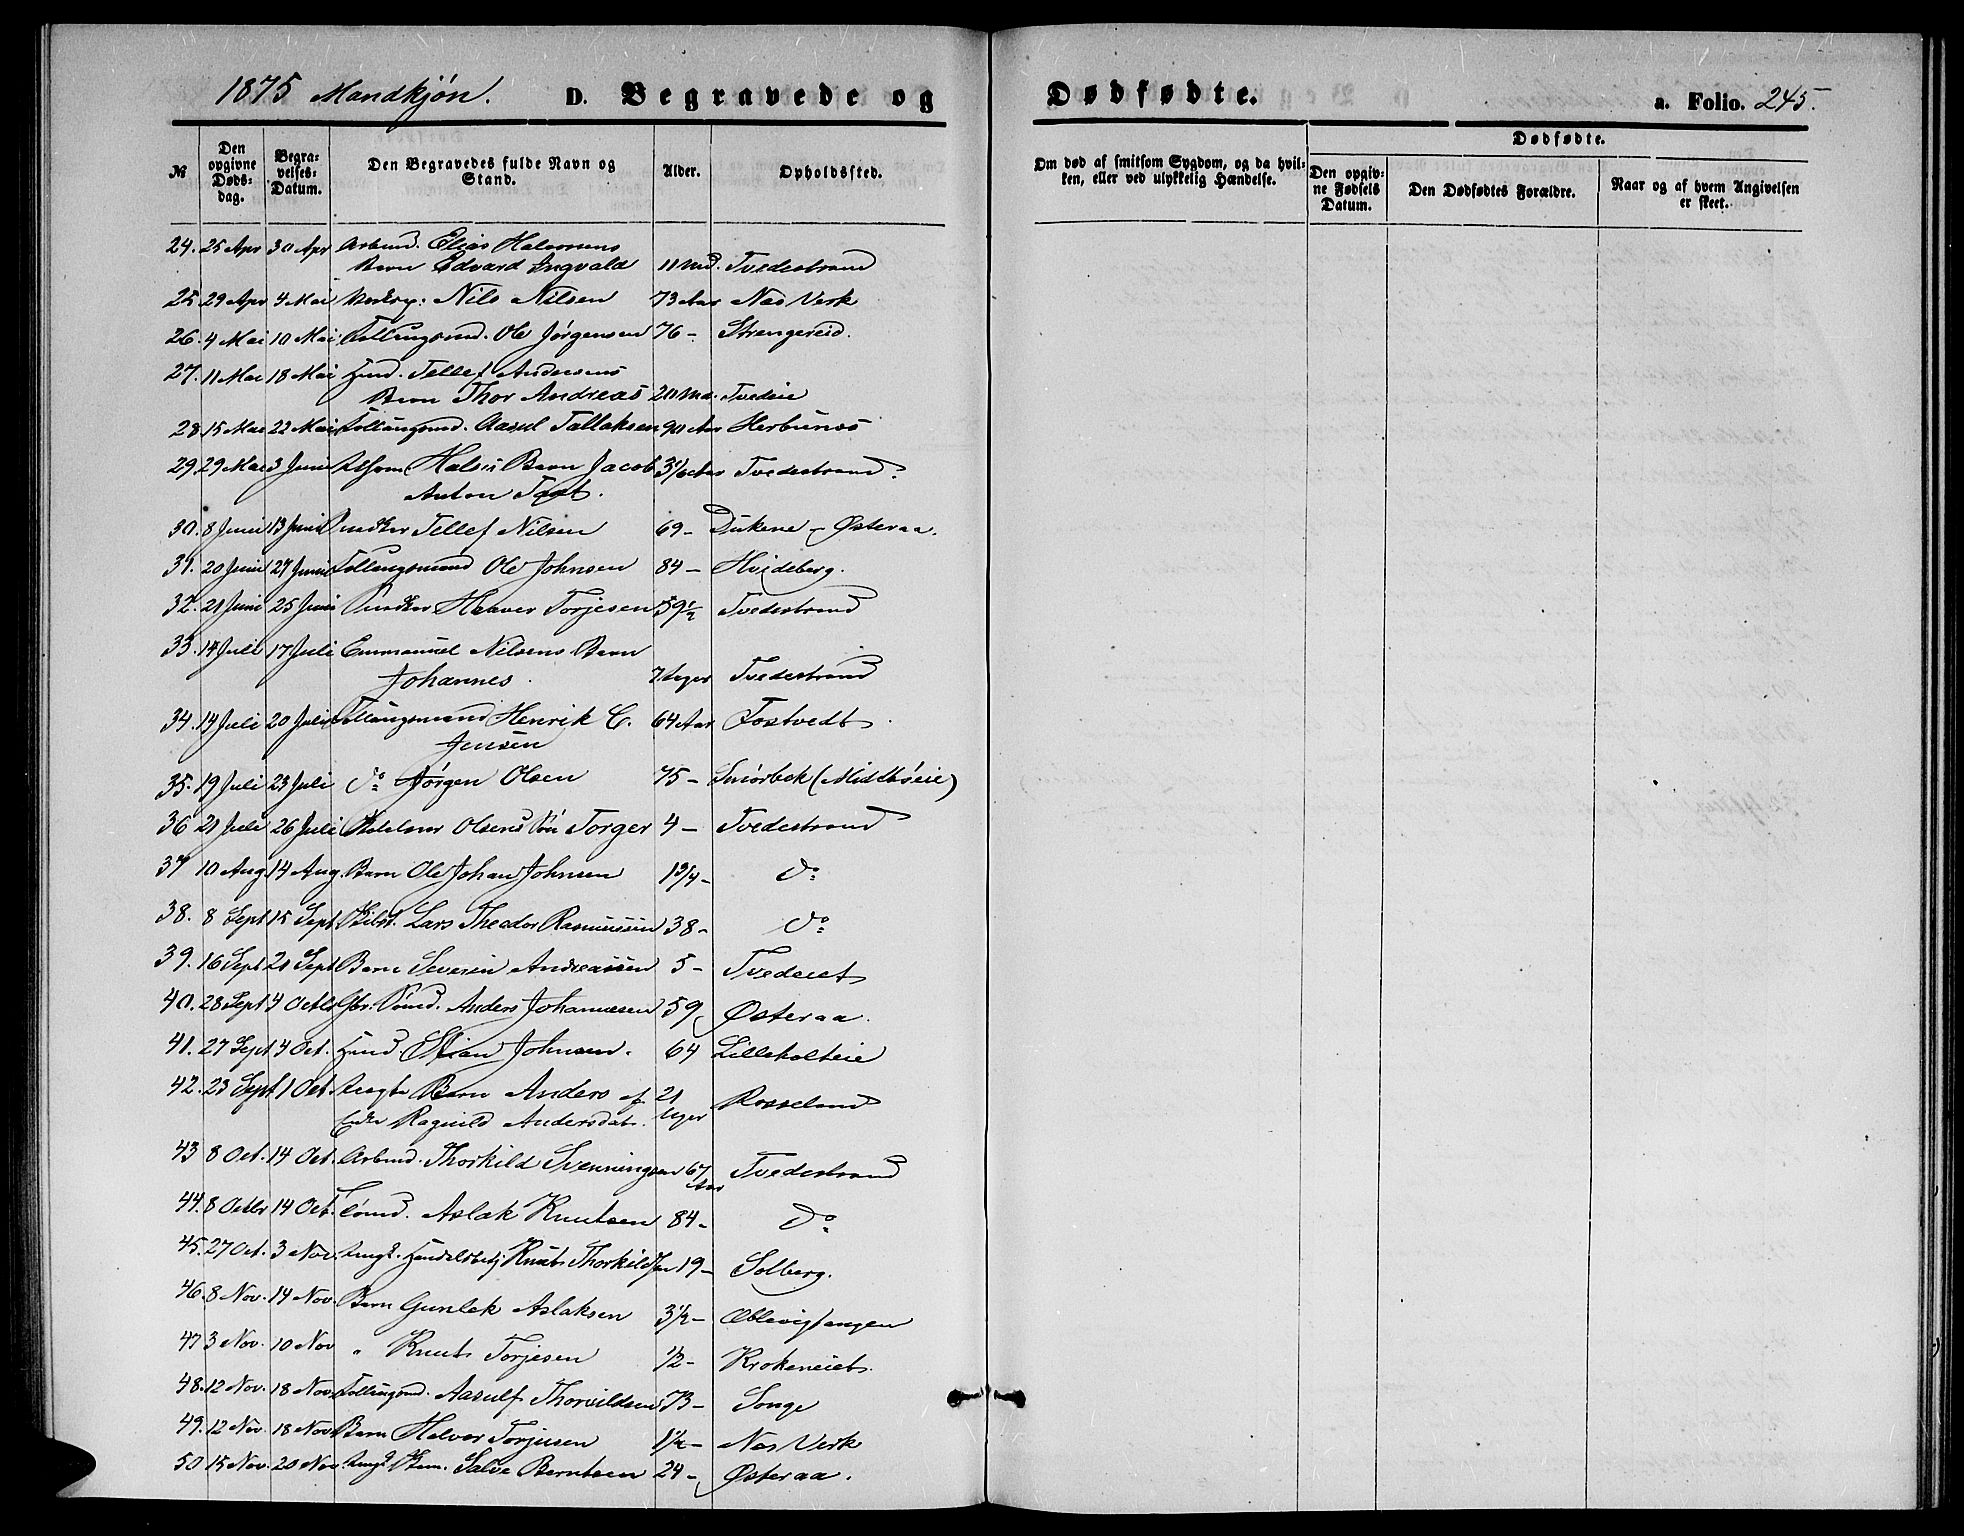 1875 Mandkjøn. D. Begravede og Dødfødte. a. Folio. 245.
№ Den opgivne Døds-dag. Begra-velses-Datum. Den Begravedes fulde Navn og Stand. Alder. Opholdssted. Om død af smitsom Sygdom, og da hvil-ken, eller ved ulykkelig Hændelse. Dødfødte. Den opgiv-ne Fødsels Datum. Den Dødfødtes Forældre. Naar og af hvem Angivelsen er skeet.
24. 25 Apr 30 Apr Arbmd. Elias Halvorsens
Barn Edvard Ingvald 11 Md. Tvedestrand
25 29 Apr 4 Mai Nils Nilsen 73 Aar Næs Verk
26. 4 Mai 10 Mai Føllingsmd. Ole Jørgensen 76 - Strengereid.
27. 11 Mai 18 Mai Hmd. Tellef Andersens
Barn Thor Andreas 20 Md. Tvedeie
28 15 Mai 22 Mai Føllaugsmd. Aasul Tallaksen 90 Aar Herbunes
29. 29 Mai 3 Juni Barn Jacob 3 1/6 Aar Tvedestrand.
Anton Tast.
30. 8 Juni 13 Juni Tellef Nilsen 69 - Dukene - Østeraa.
31. 20 Juni 27 Juni Føllaugsmand Ole Johnsen 84 - Hvideberg.
32. 21 Juni 25 Juni Haaver Torjesen 59 1/2 Tvedestrand
33. 14 Juli 17 Juli Emmanuel Nilsens Barn
Johannes. 7 Uger Tvedestrand
34. 14 Juli 20 Juli Føllaugsmand Henrik C. 64 Aar Fostvedt.
Jensen
35. 19 Juli 23 Juli do Jørgen Olsen 75 - Smörbek (Midtbøeie)
36 21 Juli 26 Juli Olsens Søn Torger 4 - Tvedestrand
37 10 Aug 14 Aug. Barn Ole Johan Johnsen 1 3/4 - do
38. 8 Sept 15 Sept Lars Theodor Rasmussen 38 - do
39. 16 Sept 21 Sept Barn Severin Andreassen 5 - Tvedeiet
40. 28 Sept 4 Octbr Gbr. Sømd. Anders Johannesen 59 Østeraa.
41. 27 Sept 4 Oct. Hmd Stian Johnsen. 64 Lilleholteie
42. 23 Sept 1 Oct. Uægte Barn Anders af 21
Enke Ragnild Andersdat. Uger Rosseland
43 8 Oct. 14 Oct. Arbmd. Thorkild Svenningsen 67 Aar Tvedestrand
44. 8 Octbr 14 Oct. Sømd. Aslak Knutsen 84 - do
45. 27 Oct. 3 Nov. Ungk. Handelsbetj Knut Thorkildsen 19 - Solberg.
46. 8 Nov. 14 Nov. Barn Gunlek Aslaksen 3 1/2 - Oblevigtangen
47 3 Nov. 10 Nov " Knut Torjesen 1/2 - Krokeneiet.
48. 12 Nov. 18 Nov. Føllingsmd. Aasulf Thorvildsen 73 - Songe
49. 12 Nov. 18 Nov Barn Halvor Torjusen 1 1/2 - Næs Verk
50 15 Nov. 20 Nov. Ungk. Salve Berntsen 24 - Østeraa.